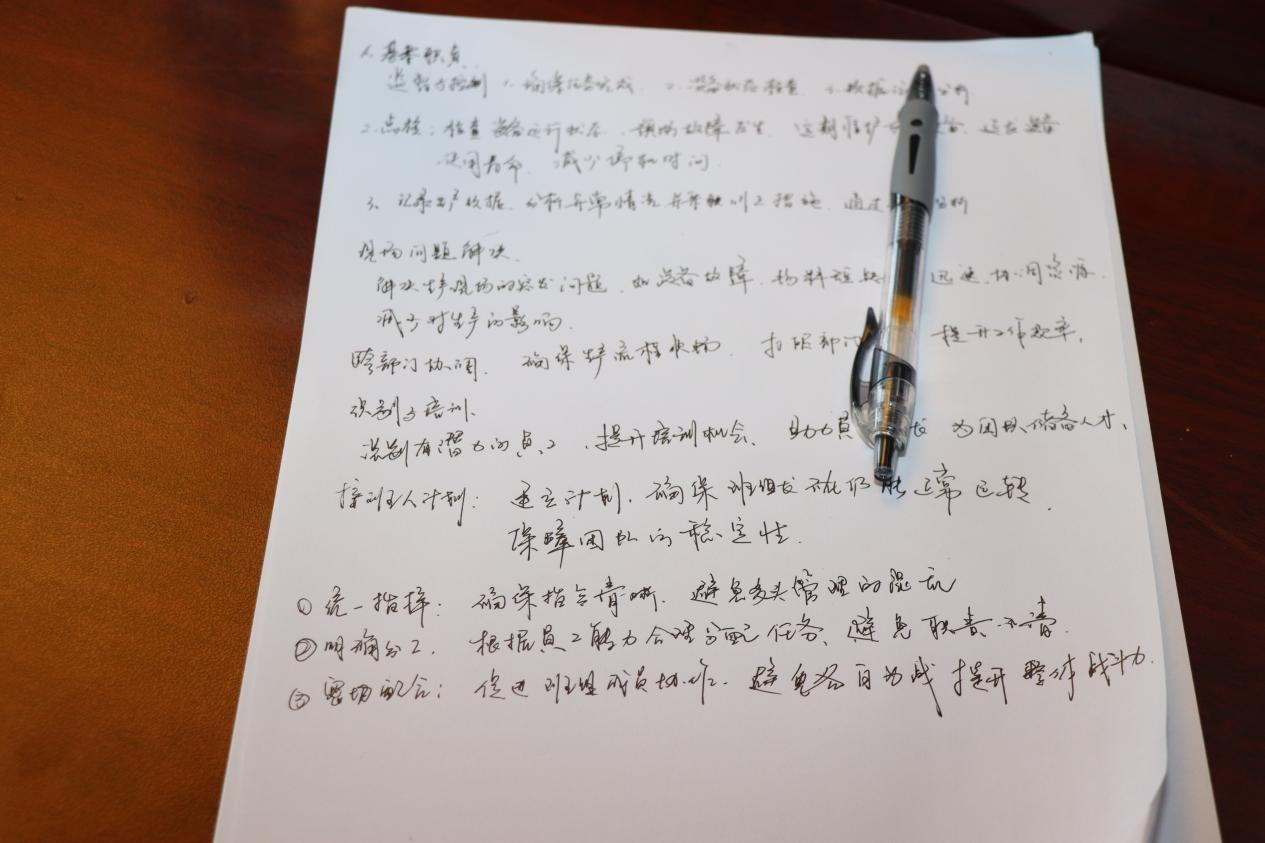 1. 基本职责
1. 确保任务完成 2. 设备状态检查 3. 数据 分析
2. 点检：检查设备运行状态、预防故障发生 定期维护 设备、延长设备
使用寿命、减少停机时间.
3、记录生产数据、分析异常情况并采取 措施、通过 分析
现场问题解决.
解决生产现场的突发问题、如设备故障、物料短缺 迅速协调资源.
减少对生产的影响.
跨部门协调. 确保生产流程 . 打破部门 提升工作效率,
识别与培训、
识别有潜力的员工、提升培训机会、助力员 长 为团队储备人才、
接班人计划: 建立计划, 确保班组长 仍能正常运转.
保障团队的稳定性.
① 统一指挥: 确保指令清晰. 避免多头管理的混乱
② 明确分工. 根据员工能力合理分配任务、避免职责不清.
③ 密切配合: 促进班组成员协作. 避免各自为战 提升整体战斗力.